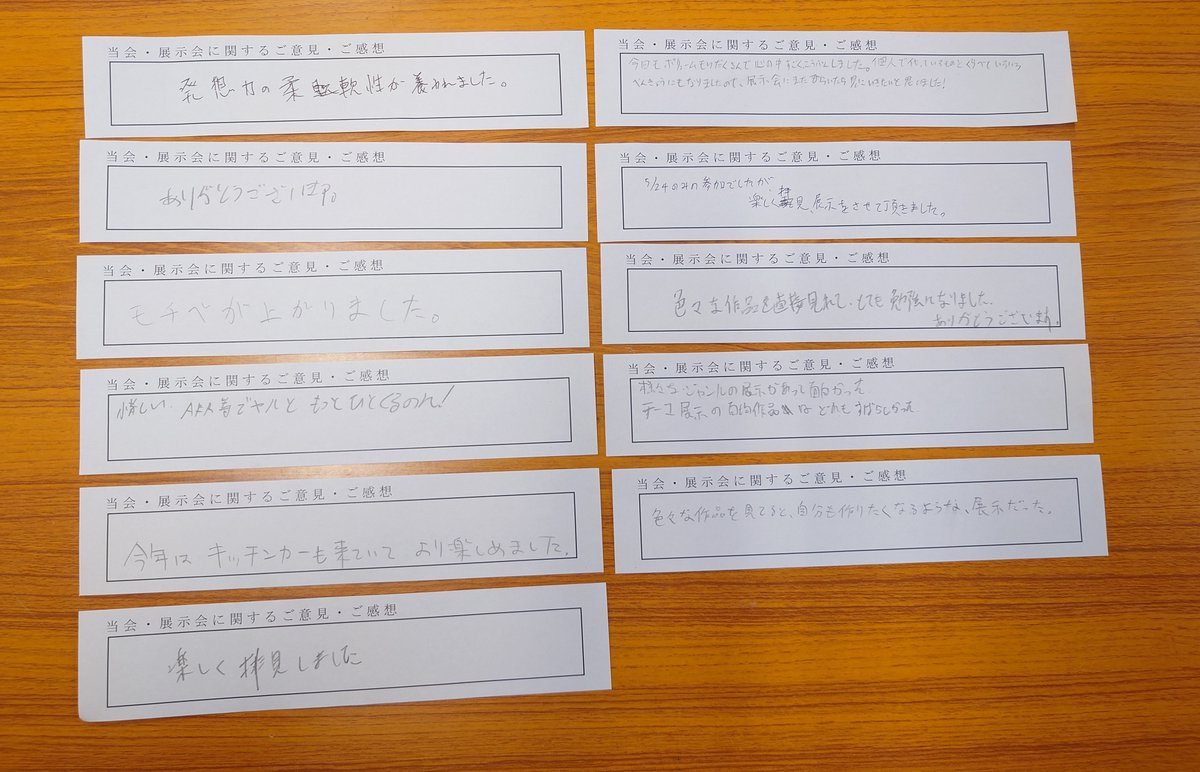 当会・展示会に関するご意見・ご感想
発想力の柔軟性が養われました。
当会・展示会に関するご意見・ご感想
ありがとうございます。
当会・展示会に関するご意見・ご感想
モチベが上がりました。
当会・展示会に関するご意見・ご感想
惜しい
もっと
当会・展示会に関するご意見・ご感想
今年はキッチンカーも来ていてより楽しめました。
当会・展示会に関するご意見・ご感想
楽しく拝見しました
当会・展示会に関するご意見・ご感想
今回もボリュームもりだくさんで
しました。個人で作っているものとくらべて
べんきょうにもなりましたので、展示会にまた
見にいきたいと思いました!
当会・展示会に関するご意見・ご感想
5/24のみの参加でしたが
楽しく拝見、展示をさせて頂きました。
当会・展示会に関するご意見・ご感想
色々な作品を直接見れて、とても勉強になりました。
ありがとうございます。
当会・展示会に関するご意見・ご感想
様々なジャンルの展示があって面白かった
テーマ展示の
作品はどれもすばらしかった
当会・展示会に関するご意見・ご感想
色々な作品を見てると、自分も作りたくなるような、展示だった。